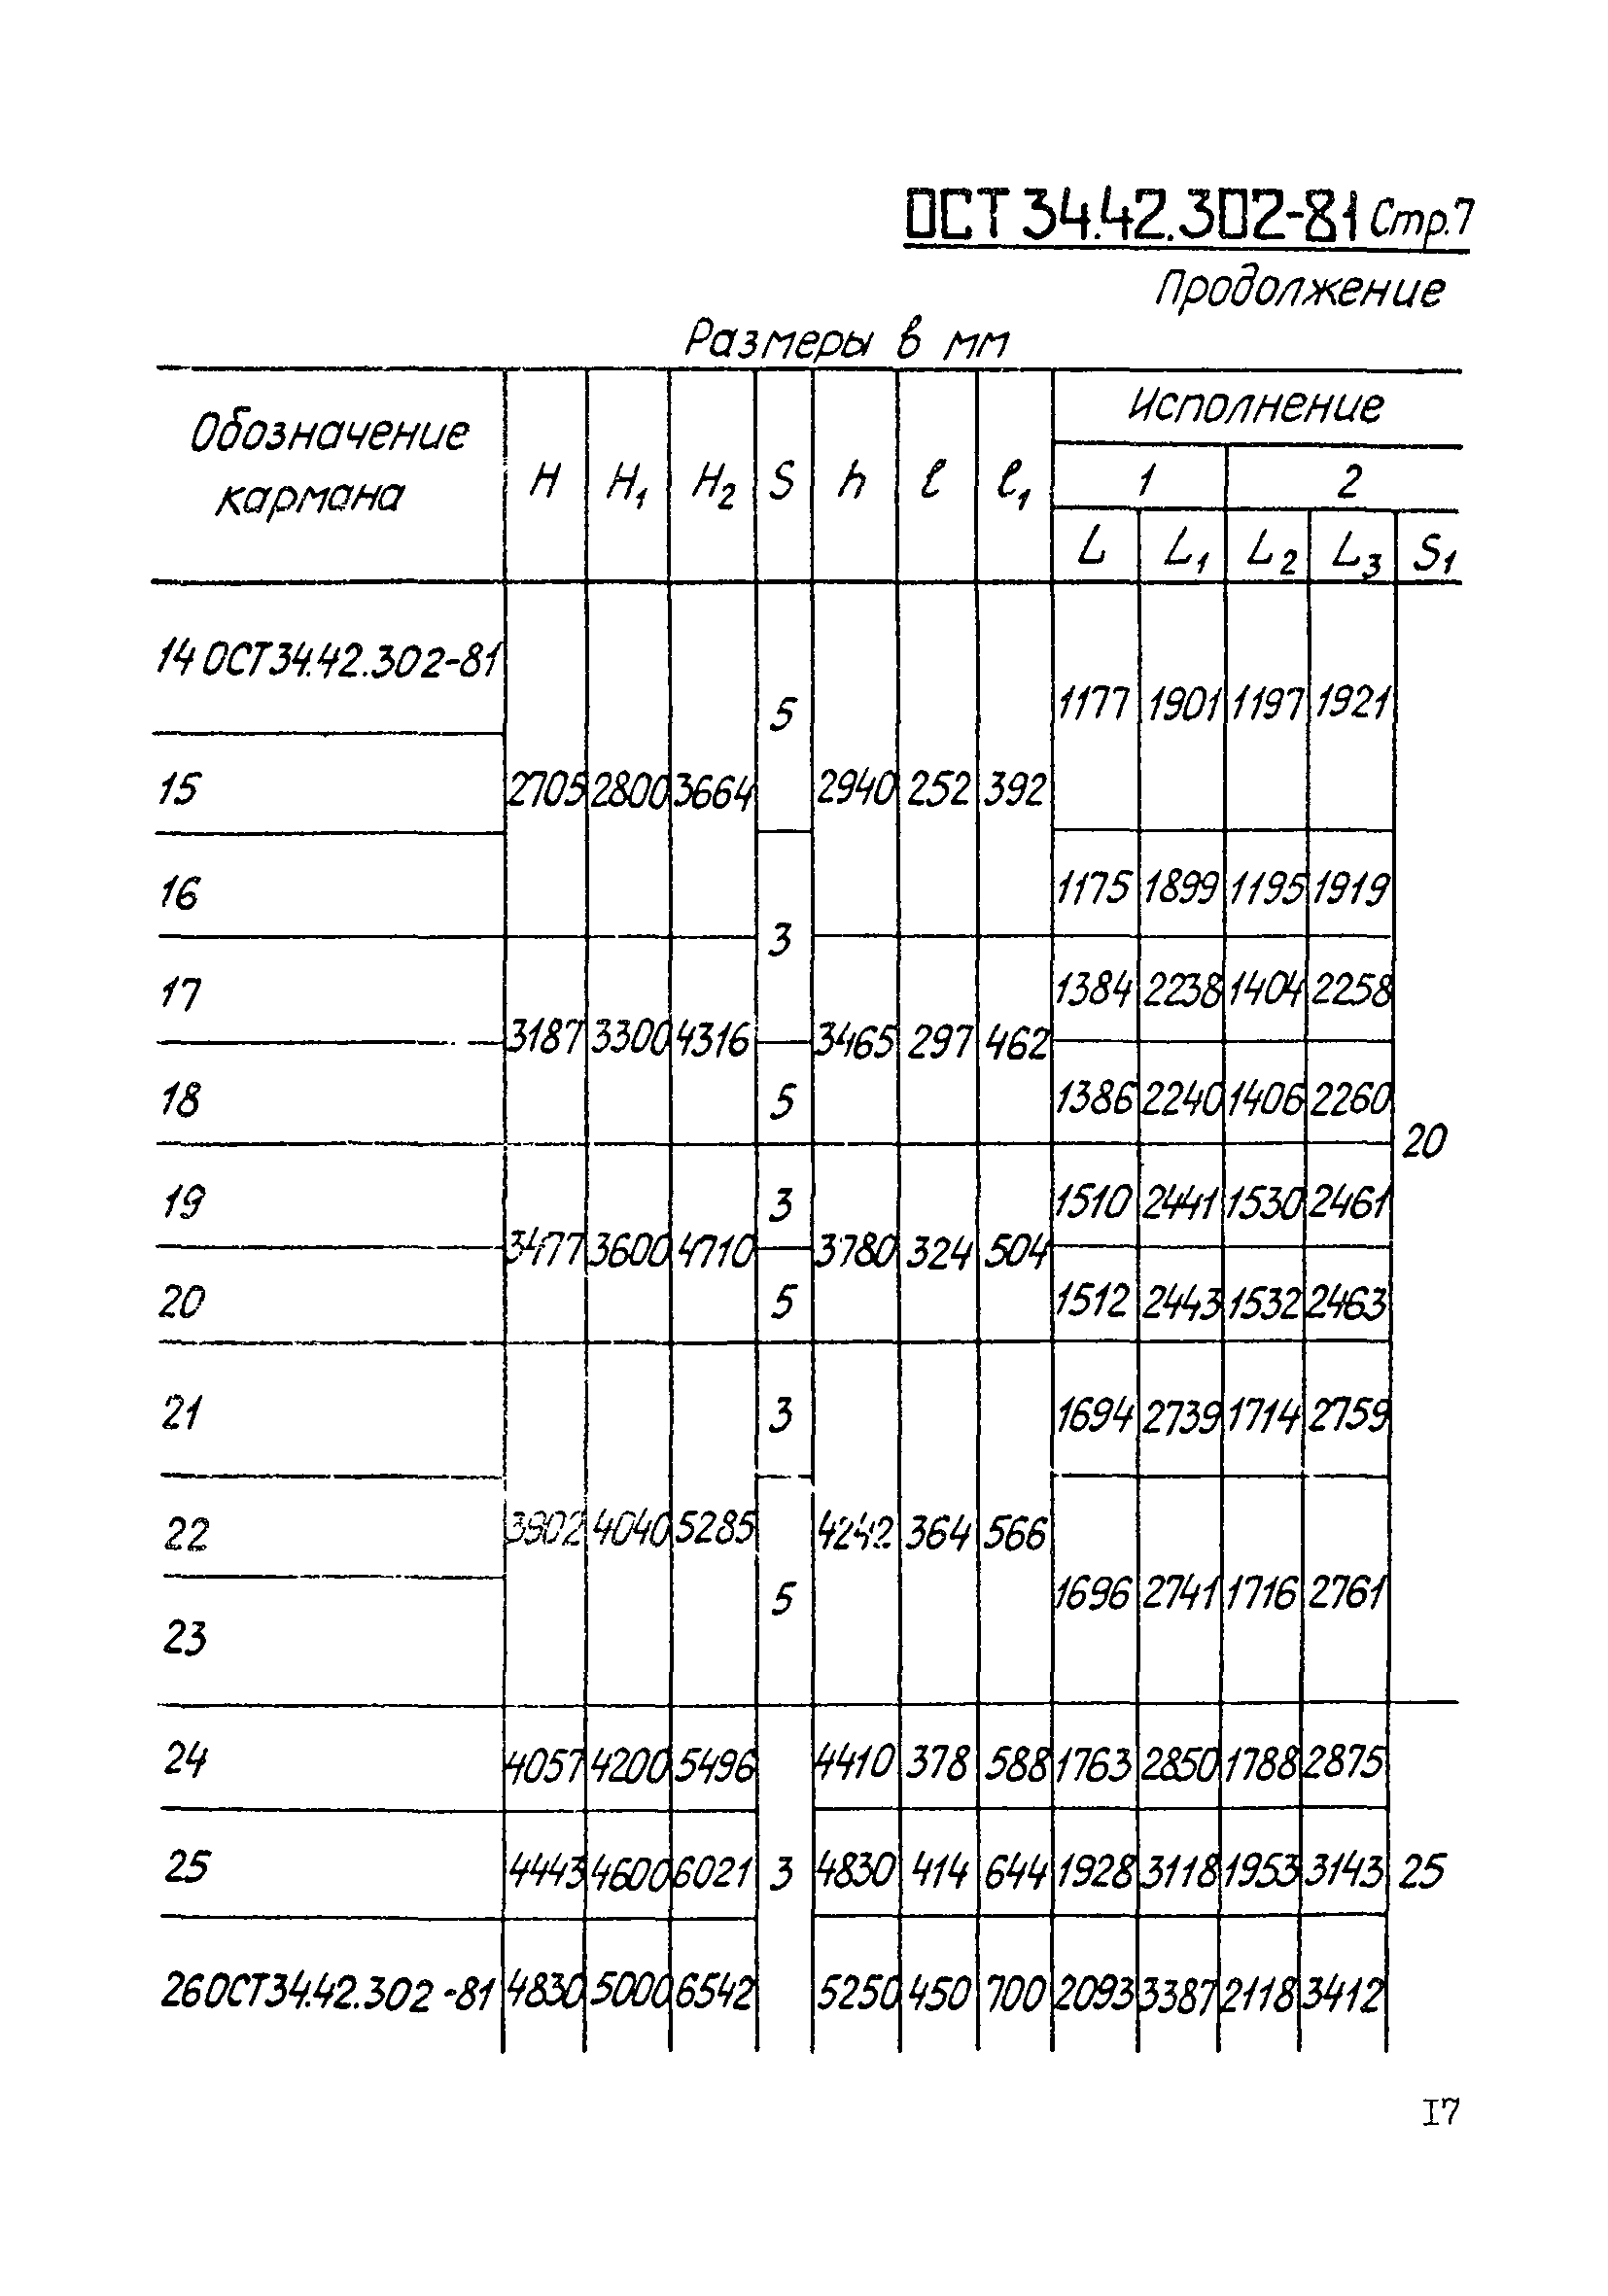 ОСТ 34.42.302-81 Стр.7
Продолжение
Размеры в мм
Обозначение кармана H H₁ H₂ S h ℓ ℓ₁ Исполнение
1 2
L L₁ L₂ L₃ S₁
14 ОСТ34.42.302-81
5 1177 1901 1197 1921
15 2705 2800 3664 2940 252 392
16 1175 1899 1195 1919
3
17 1384 2238 1404 2258
3187 3300 4316 3465 297 462
18 5 1386 2240 1406 2260
20
19 3 1510 2441 1530 2461
3477 3600 4710 3780 324 504
20 5 1512 2443 1532 2463
21 3 1694 2739 1714 2759
22 4040 5285 4242 364 566
5 1696 2741 1716 2761
23
24 4057 4200 5496 4410 378 588 1763 2850 1788 2875
25 4443 4600 6021 3 4830 414 644 1928 3118 1953 3143 25
26 ОСТ34.42.302-81 4830 5000 6542 5250 450 700 2093 3387 2118 3412
I7